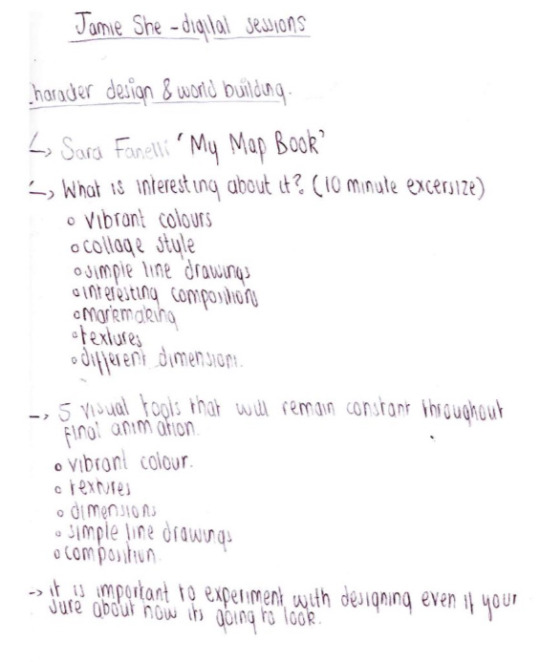 Jamie She - digital sessions
Character design & world building.
↳ Sara Fanelli 'My Map Book'
↳ What is interesting about it? (10 minute excersize)
o vibrant colours
o collage style
o simple line drawings
o interesting compositions
o markmaking
o textures
o different dimensions.
→ 5 visual tools that will remain constant throughout
final animation.
o vibrant colour.
o textures
o dimensions
o simple line drawings
o composition.
→ it is important to experiment with designing even if your
sure about how its going to look.